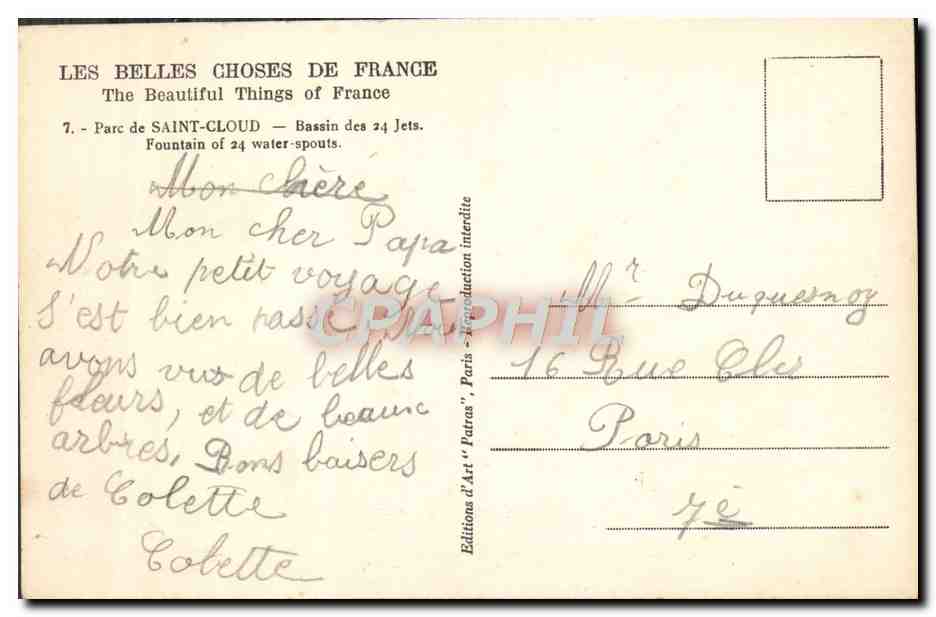 LES BELLES CHOSES DE FRANCE
The Beautiful Things of France
7. - Parc de SAINT-CLOUD — Bassin des 24 Jets.
Fountain of 24 water-spouts.
Mon
Mon cher Papa
Notre petit voyage
s'est bien passé Nous
avons vus de belles
fleurs, et de beaux
arbres, Bons baisers
de Colette
Colette
Editions d'Art "Patras", Paris - Reproduction interdite
CPAPHIL
Mr Duquesnoy
16 Rue Cler
Paris
7è